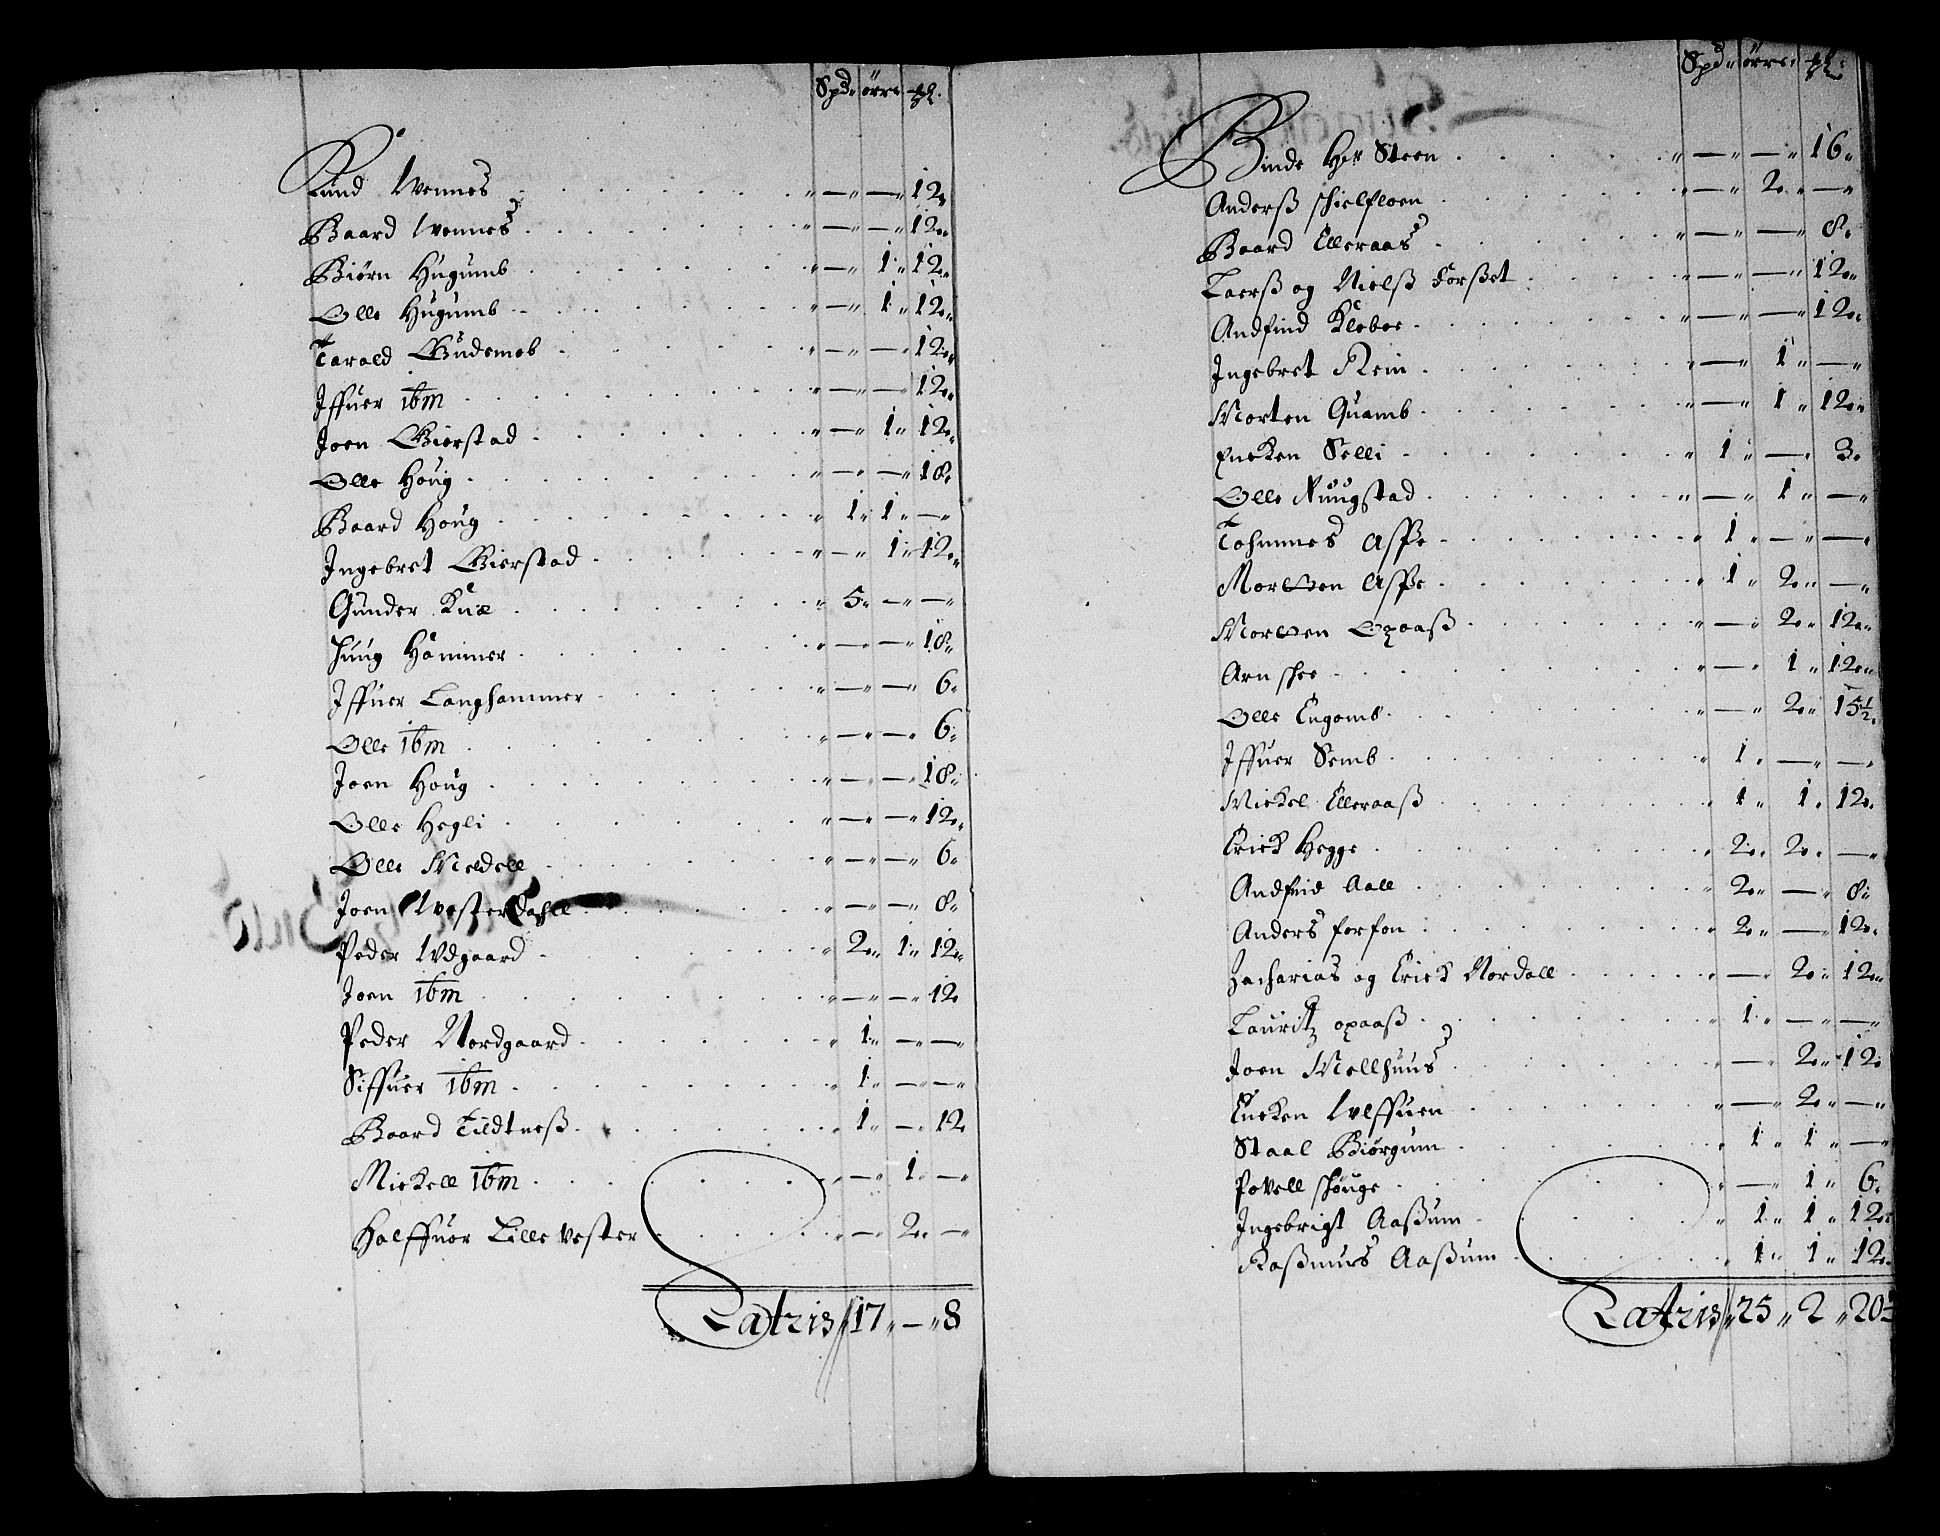 Spd. örre ℔.
Knud Wennes — — 12
Baard Wennes — — 12
Biörn Hugumb — 1 12
Olle Hugumb — 1 12
Tarald Gudemob — — 12
Iffuer ibm — — 12
Joen Gierstad — 1 12
Olle Houg — — 18
Baard Houg 1 1 —
Ingebret Gierstad — 1 12
Gunder Kuæ 5 — —
Hammer — — 18
Iffuer Langhammer — — 6
Olle ibm — — 6
Joen Houg — — 18
Olle Hegli — — 12
Olle Meldell — — 6
Joen Westerdahll — — 8
Peder Wdgaard 2 1 12
Joen ibm — — 12
Peder Nordgaard 1 — —
Siffuer ibm 1 — —
Baard Tildtneß 1 — 12
Mickell ibm — 1 —
Halffuor Lille vester — 2 —
Latris 17 — 8
Spd. örre ℔.
Binde Her Steen — — 16
Anderß schielfloen — 2 —
Baard Elleraas — — 8
Laerß og Nielß Forßet — — 12
Andfind Kleboe — — 12
Ingebret Rein — 1 —
Morten Quamb — 1 12
Encken Selli 1 — 3
Olle Ruugstad — 1 —
Tohmmes Aspe 1 — —
Morten Aspe 1 2 —
Morten Opaaß — 2 12
Arn schee — 1 12
Olle Engomb — 2 15½
Iffuer Semb 1 — —
Mickel Elleraaß 1 1 12
Erick Hegge 2 2 —
Andfind Aall 2 — 8
Anders forfon 2 — 12
Zacharias og Erick Nordall — 2 12
Lauritz opaaß 1 — —
Joen Mellhuus — 2 12
Encken Wlffuen — 2 —
Staal Biörgum 1 1 —
Povell schouge — 1 6
Ingebrigt Aaßum 1 1 12
Raßmurs Aaßum 1 1 12
Latris 25 2 20½